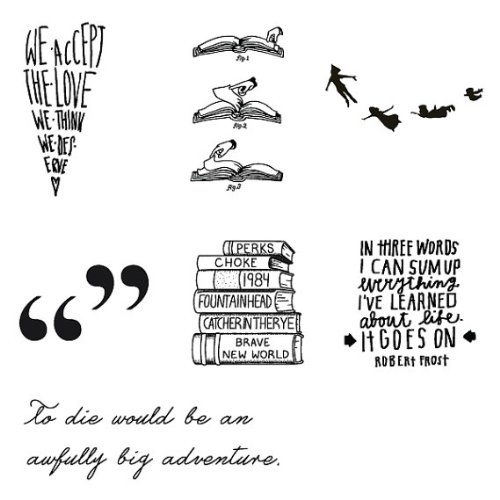 WE·ACCEPT
THE·LOVE
WE·THINK
WE·DES-
ERVE
fig.1
fig.2
fig.3
“ ”
PERKS
CHOKE
1984
FOUNTAINHEAD
CATCHER IN THE RYE
BRAVE
NEW WORLD
IN THREE WORDS
I CAN SUM UP
everything
I'VE LEARNED
about life.
IT GOES ON
ROBERT FROST
To die would be an
awfully big adventure.